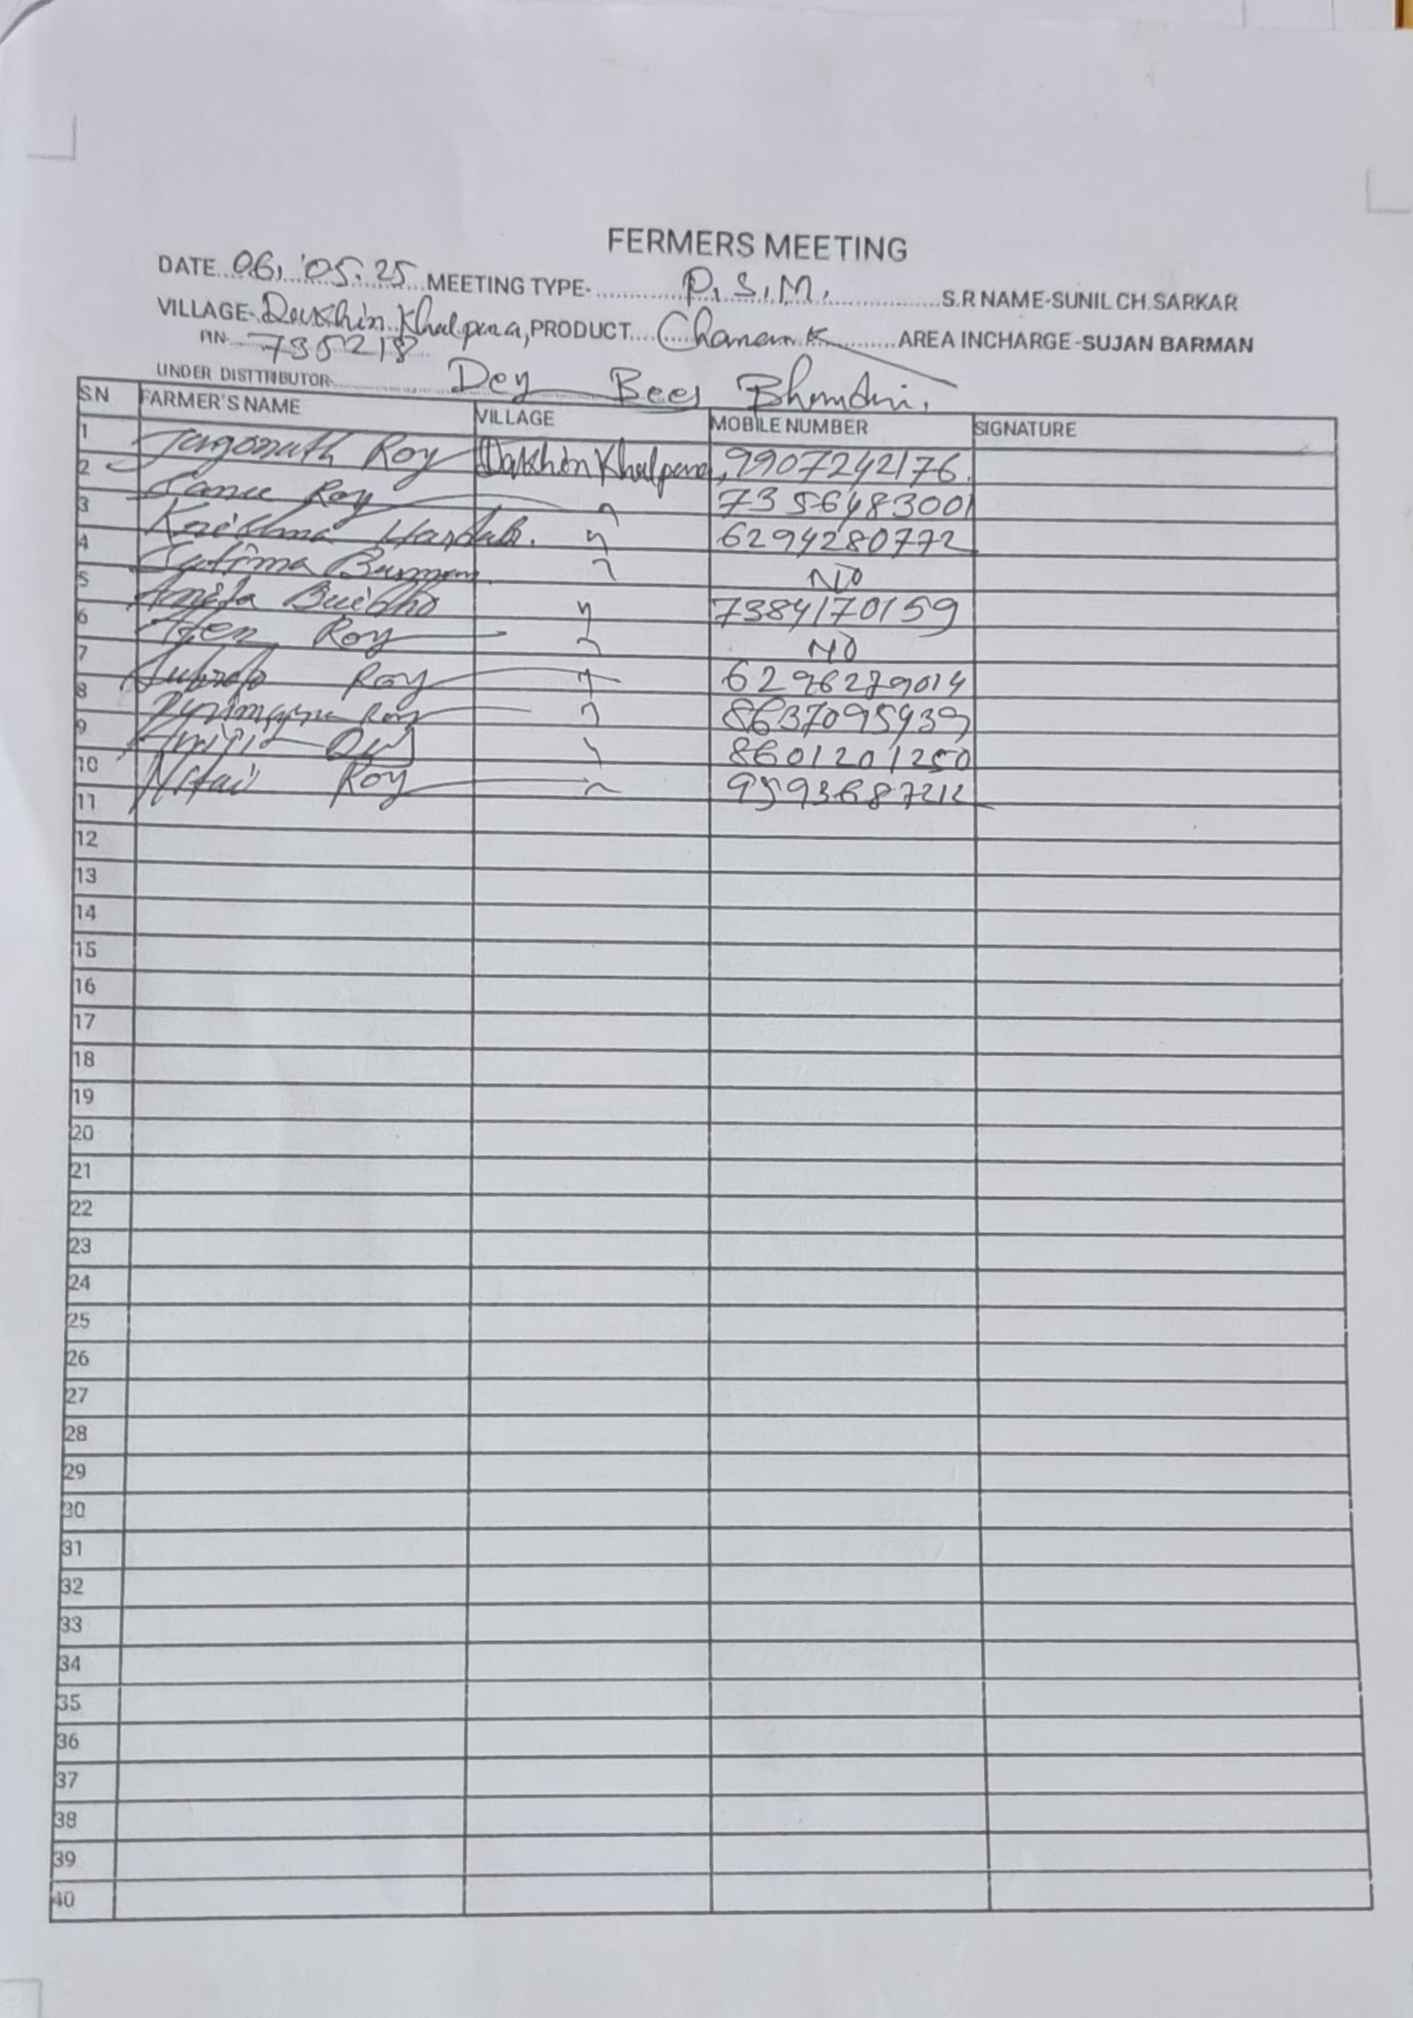 FERMERS MEETING
DATE 06, 05.25 MEETING TYPE- P.S.M. S.R NAME-SUNIL CH. SARKAR
VILLAGE- Dakshin Khalpara, PRODUCT Chanamk AREA INCHARGE-SUJAN BARMAN
PIN- 735218
UNDER DISTTRIBUTOR Dey Beej Bhandar.
SN FARMER'S NAME VILLAGE MOBILE NUMBER SIGNATURE
1 Jagonath Roy Dakshin Khalpara, 9907242176
2 Roy " 7356483001
3 Karishma " 6294280772
4 Barman " NO
5 Anita " 7384170159
6 Roy " NO
7 Subroto Roy " 6296279014
8 Roy " 8637095939
9 " 8601201250
10 Nitai Roy "
11
12
13
14
15
16
17
18
19
20
21
22
23
24
25
26
27
28
29
30
31
32
33
34
35
36
37
38
39
40